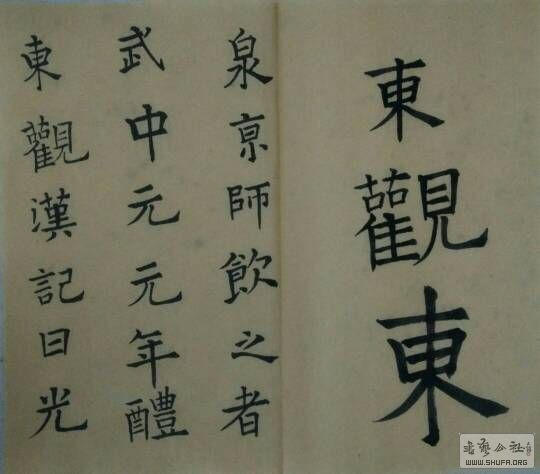 東觀漢記曰光
武中元元年醴
泉亰師飲之者
東觀東
书艺公社
WWW.SHUFA.ORG